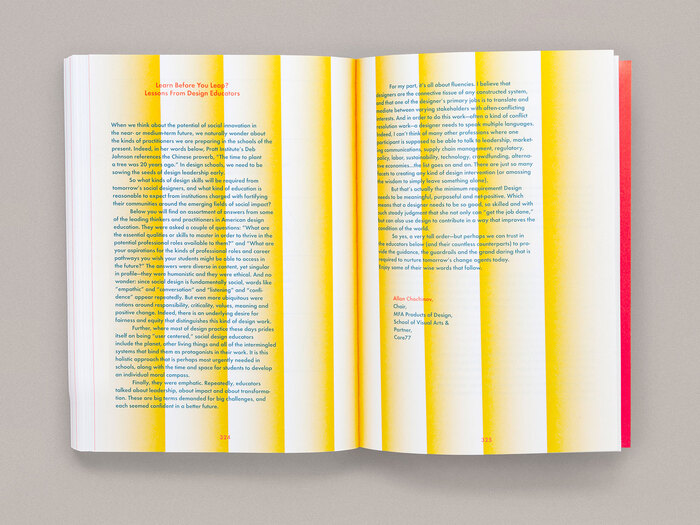 Learn Before You Leap?
Lessons From Design Educators
When we think about the potential of social innovation in
the near- or medium-term future, we naturally wonder about
the kinds of practitioners we are preparing in the schools of the
present. Indeed, in her words below, Pratt Institute's Deb
Johnson references the Chinese proverb, "The time to plant
a tree was 20 years ago." In design schools, we need to be
sowing the seeds of design leadership early.
So what kinds of design skills will be required from
tomorrow's social designers, and what kind of education is
reasonable to expect from institutions charged with fortifying
their communities around the emerging fields of social impact?
Below you will find an assortment of answers from some
of the leading thinkers and practitioners in American design
education. They were asked a couple of questions: "What are
the essential qualities or skills to master in order to thrive in the
potential professional roles available to them?" and "What are
your aspirations for the kinds of professional roles and career
pathways you wish your students might be able to access in
the future?" The answers were diverse in content, yet singular
in profile—they were humanistic and they were ethical. And no
wonder: since social design is fundamentally social, words like
"empathic" and "conversation" and "listening" and "confi-
dence" appear repeatedly. But even more ubiquitous were
notions around responsibility, criticality, values, meaning and
positive change. Indeed, there is an underlying desire for
fairness and equity that distinguishes this kind of design work.
Further, where most of design practice these days prides
itself on being "user centered," social design educators
include the planet, other living things and all of the intermingled
systems that bind them as protagonists in their work. It is this
holistic approach that is perhaps most urgently needed in
schools, along with the time and space for students to develop
an individual moral compass.
Finally, they were emphatic. Repeatedly, educators
talked about leadership, about impact and about transforma-
tion. These are big terms demanded for big challenges, and
each seemed confident in a better future.
324
For my part, it's all about fluencies. I believe that
designers are the connective tissue of any constructed system,
and that one of the designer's primary jobs is to translate and
mediate between varying stakeholders with often-conflicting
interests. And in order to do this work—often a kind of conflict
resolution work—a designer needs to speak multiple languages.
Indeed, I can't think of many other professions where one
participant is supposed to be able to talk to leadership, market-
ing communications, supply chain management, regulatory,
policy, labor, sustainability, technology, crowdfunding, alterna-
tive economies...the list goes on and on. There are just so many
facets to creating any kind of design intervention (or amassing
the wisdom to simply leave something alone).
But that's actually the minimum requirement! Design
needs to be meaningful, purposeful and net-positive. Which
means that a designer needs to be so good, so skilled with
such steady judgment that she not only can "get the job done,"
but can also use design to contribute in a way that improves the
condition of the world.
So yes, a very tall order—but perhaps we can trust in
the educators below (and their countless counterparts) to pro-
vide the guidance, the guardrails and the grand daring that is
required to nurture tomorrow's change agents today.
Enjoy some of their wise words that follow.
Allan Chochinov,
Chair,
MFA Products of Design,
School of Visual Arts &
Partner,
Core77
325